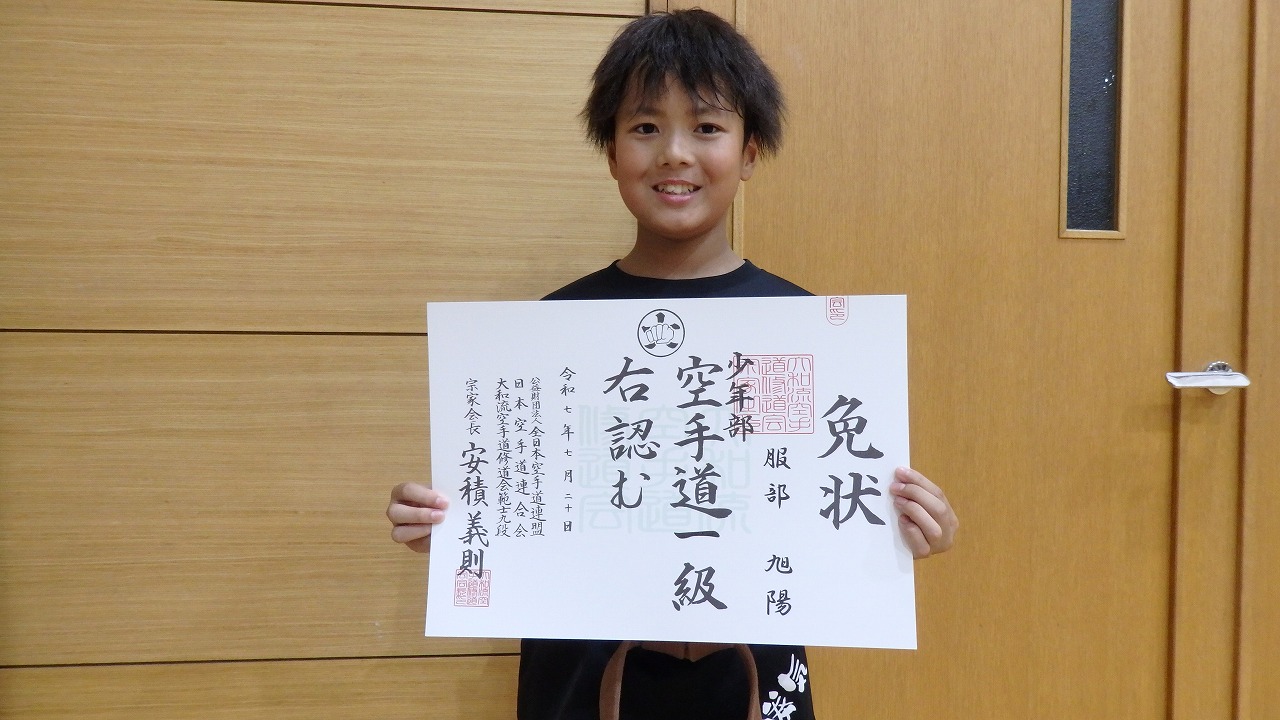 免状
服部 旭陽
少年部
空手道一級
右認む
令和七年七月二十日
公益財団法人全日本空手道連盟
日本空手道連合会
大和流空手道修道会範士九段
宗家会長 安積義則